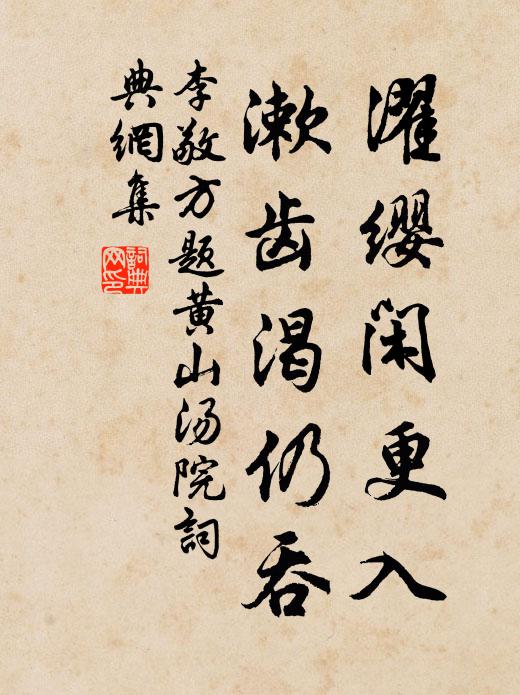 濯缨闲更入
漱齿渴仍吞
李敬方题黄山汤院詞
典網集
詞典網印